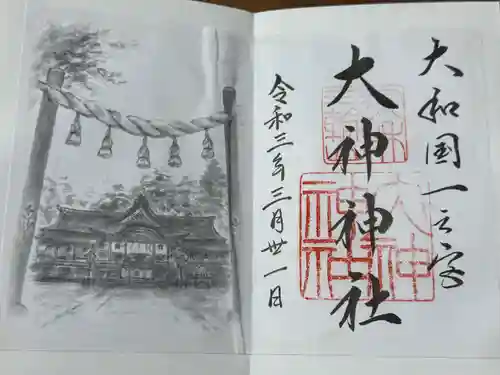 大和国一之宮
大神神社
令和三年三月卅一日